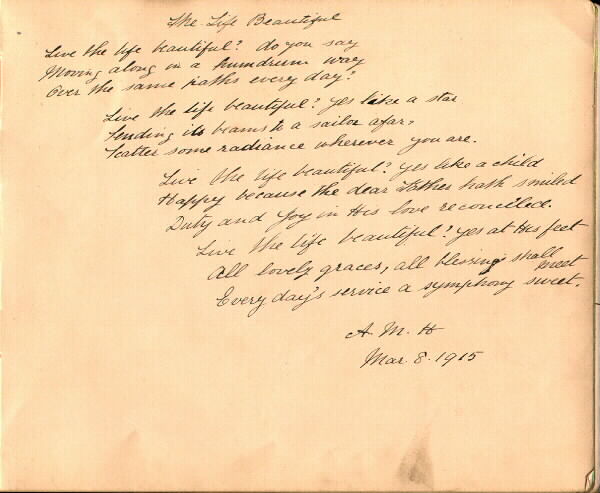 The Life Beautiful
Live the life beautiful? do you say
Moving along in a humdrum way
Over the same paths every day?
Live the life beautiful? yes like a star
Sending its beams to a sailor afar,
Scatter some radiance wherever you are.
Live the life beautiful? yes like a child
Happy because the dear Father hath smiled
Duty and Joy in His love reconciled.
Live the life beautiful? yes at His feet
All lovely graces, all blessings shall meet
Every day's service a symphony sweet.
A. M. H
Mar. 8. 1915